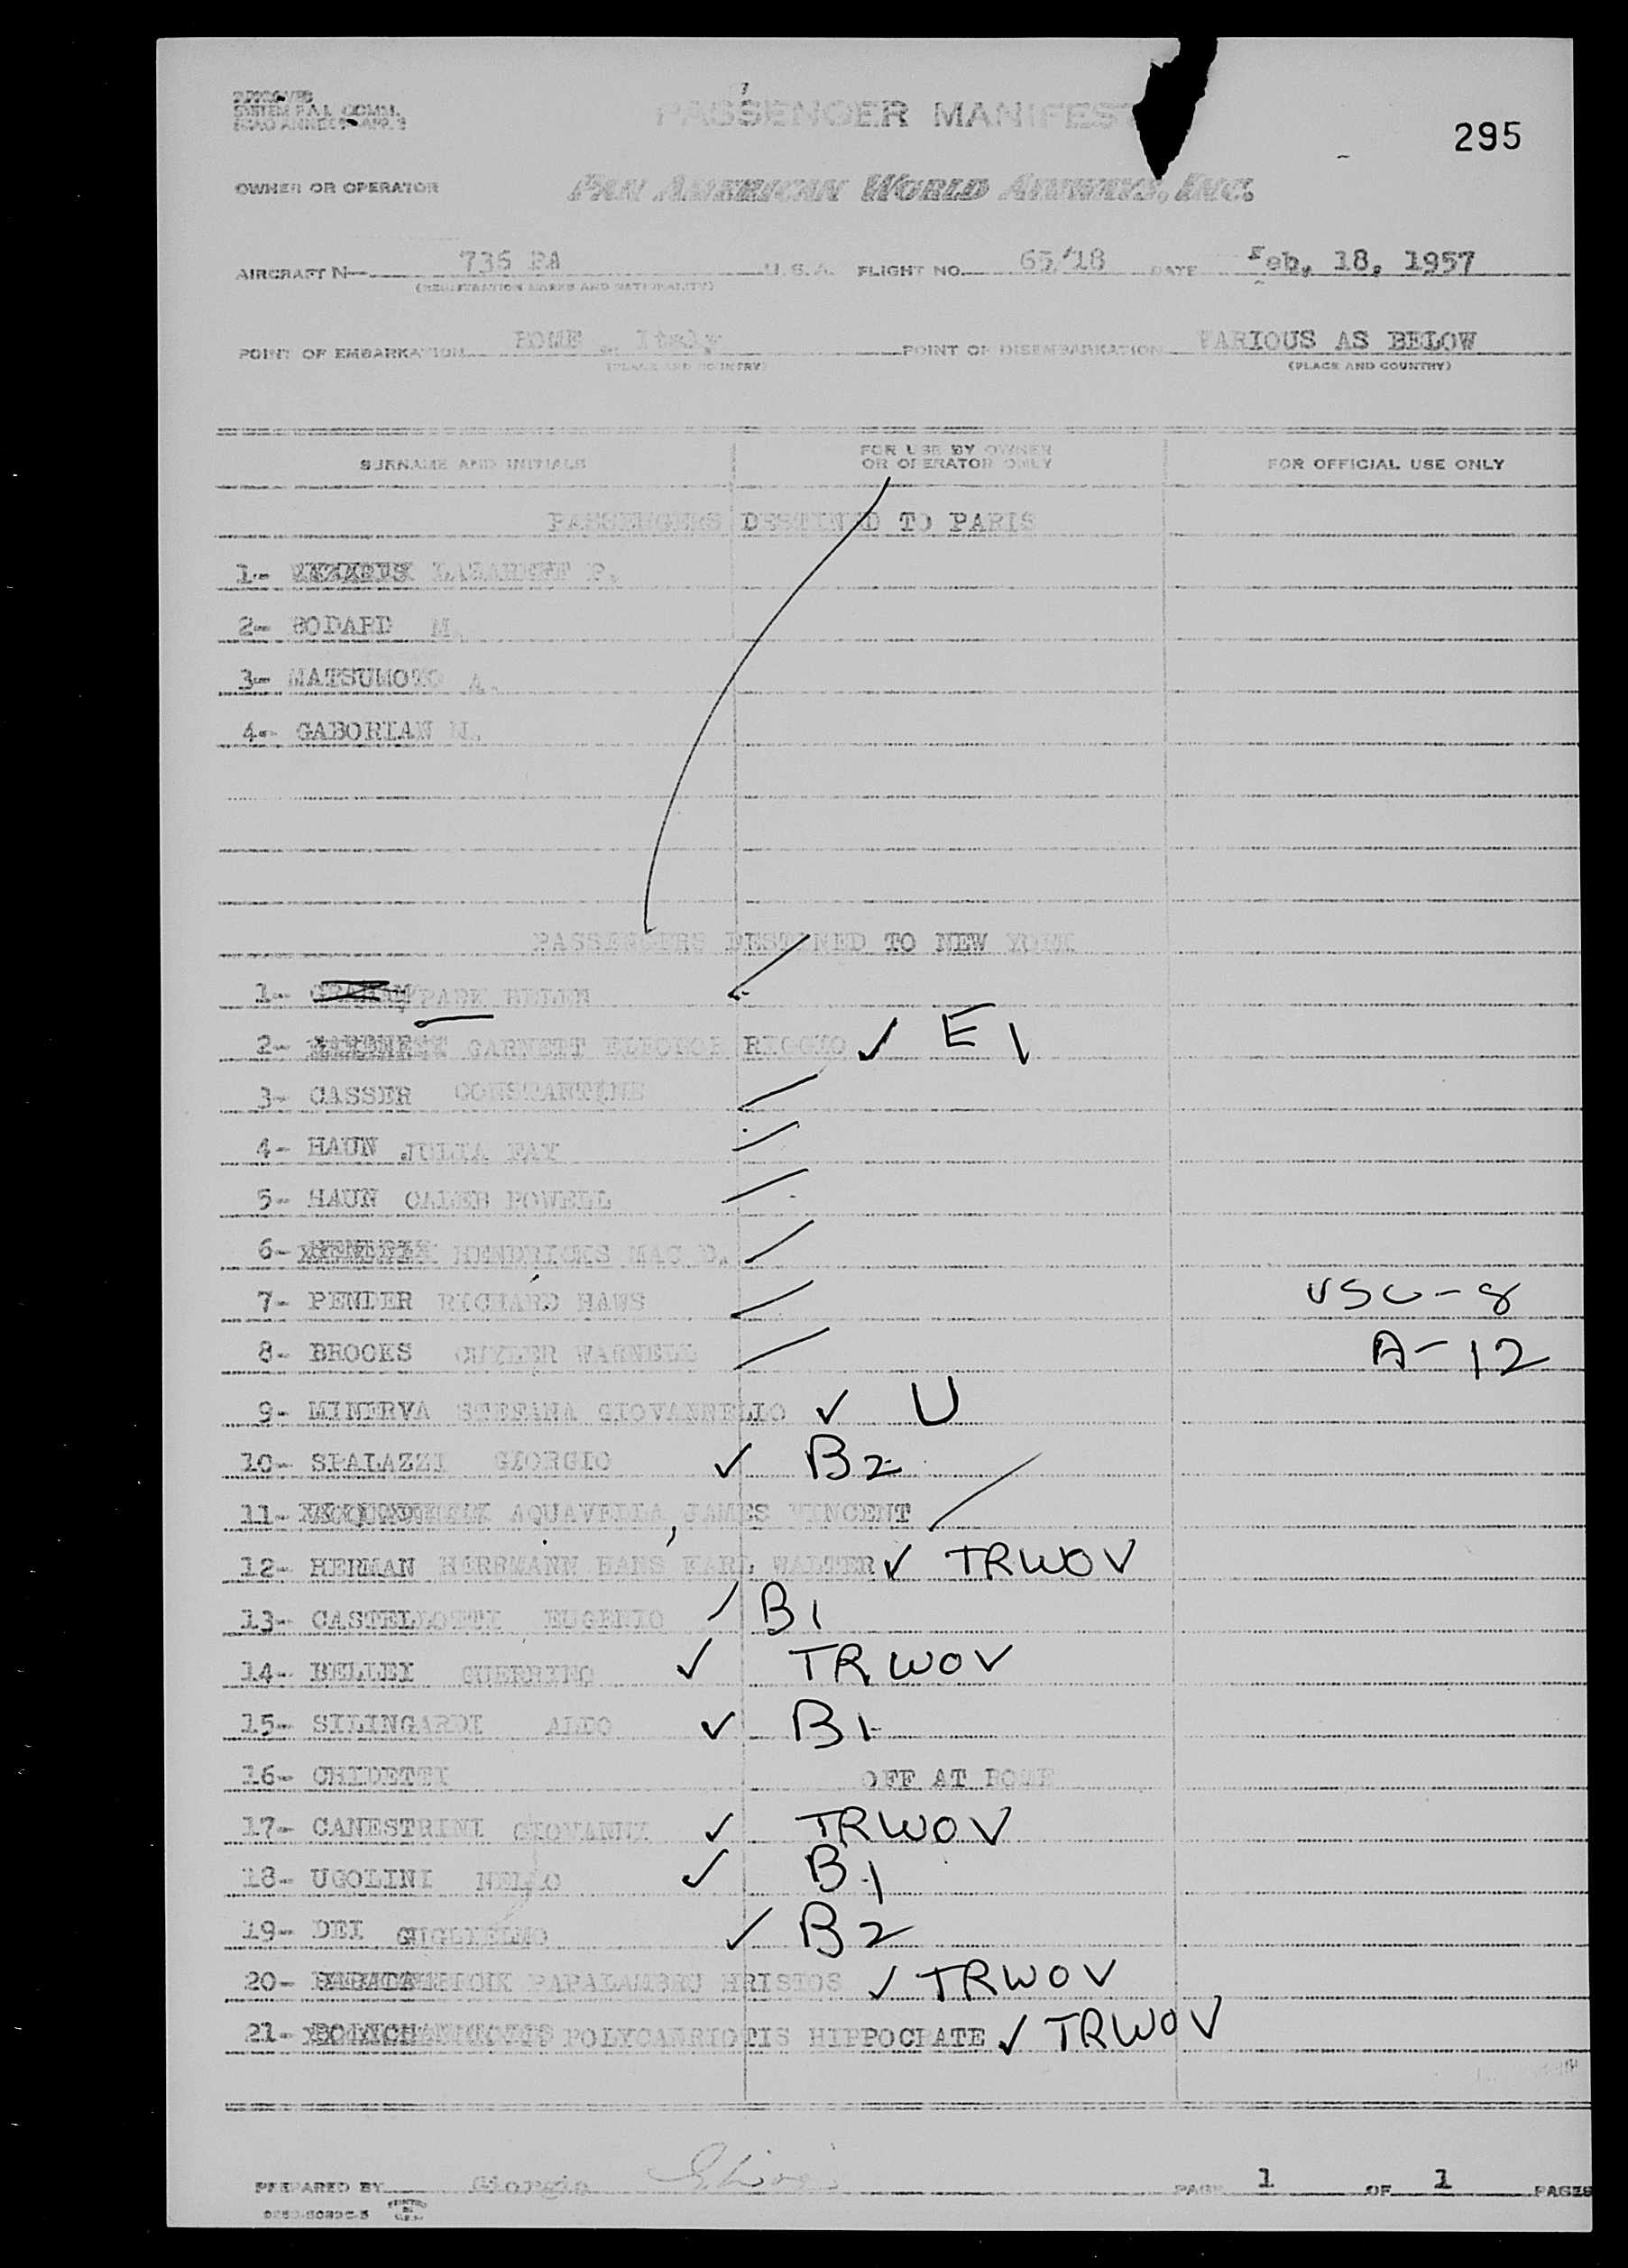 APPROVED
PASSENGER MANIFEST
295
OWNER OR OPERATOR PAN AMERICAN WORLD AIRWAYS, INC.
AIRCRAFT N 735 PA U.S.A. FLIGHT NO. 65/18 DATE Feb, 18, 1957
(REGISTRATION MARKS AND NATIONALITY)
POINT OF EMBARKATION ROME Italy POINT OF DISEMBARKATION VARIOUS AS BELOW
(PLACE AND COUNTRY) (PLACE AND COUNTRY)
SURNAME AND INITIALS FOR USE BY OWNER OR OPERATOR ONLY FOR OFFICIAL USE ONLY
PASSENGERS DESTINED TO PARIS
1- LAZAREFF P.
2- BODARD M.
3- MATSUMOTO A.
4- GABORIAN M.
PASSENGERS DESTINED TO NEW YORK
1- HELEN
2- GARNETT RICCIO ✓ E 1
3- CASSER CONSTANTINE
4- HAUN JULIA FAY
5- HAUN CALEB POWELL
6- HENDRICKS MAC D.
7- PENDER RICHARD HAWS USC-8
8- BROOKS CUYLER A-12
9- MINERVA STEFANA GIOVANNELLO ✓ U
10- SPALAZZI GIORGIO ✓ B2
11- AQUAVELLA, JAMES VINCENT
12- HERMAN HERRMANN HANS KARL WALTER ✓ TRWOV
13- CASTELLOTTI EUGENIO B1
14- BELLEI GUERRINO ✓ TRWOV
15- SILINGARDI ALDO ✓ B1
16- GHIDETTI OFF AT ROME
17- CANESTRINI GIOVANNI ✓ TRWOV
18- UGOLINI NELLO ✓ B1
19- DEI GUGLIELMO ✓ B2
20- PAPALAMBRU HRISTOS ✓ TRWOV
21- POLYCANRIOTIS HIPPOCRATE ✓ TRWOV
PREPARED BY Giorgio PAGE 1 OF 1 PAGES